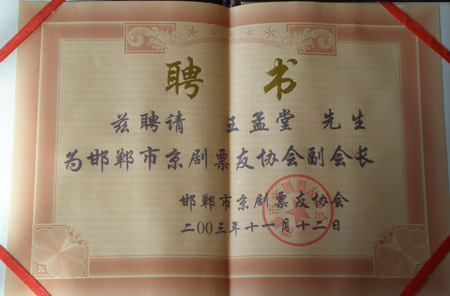 聘书
兹聘请 王孟堂 先生
为邯郸市京剧票友协会副会长
邯郸市京剧票友协会
二00三年十一月十二日